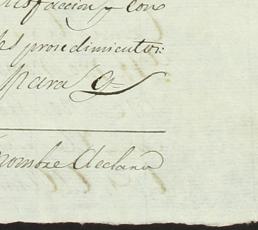 isfaccion y con
los procedimientos:
para q.^
nombre declara